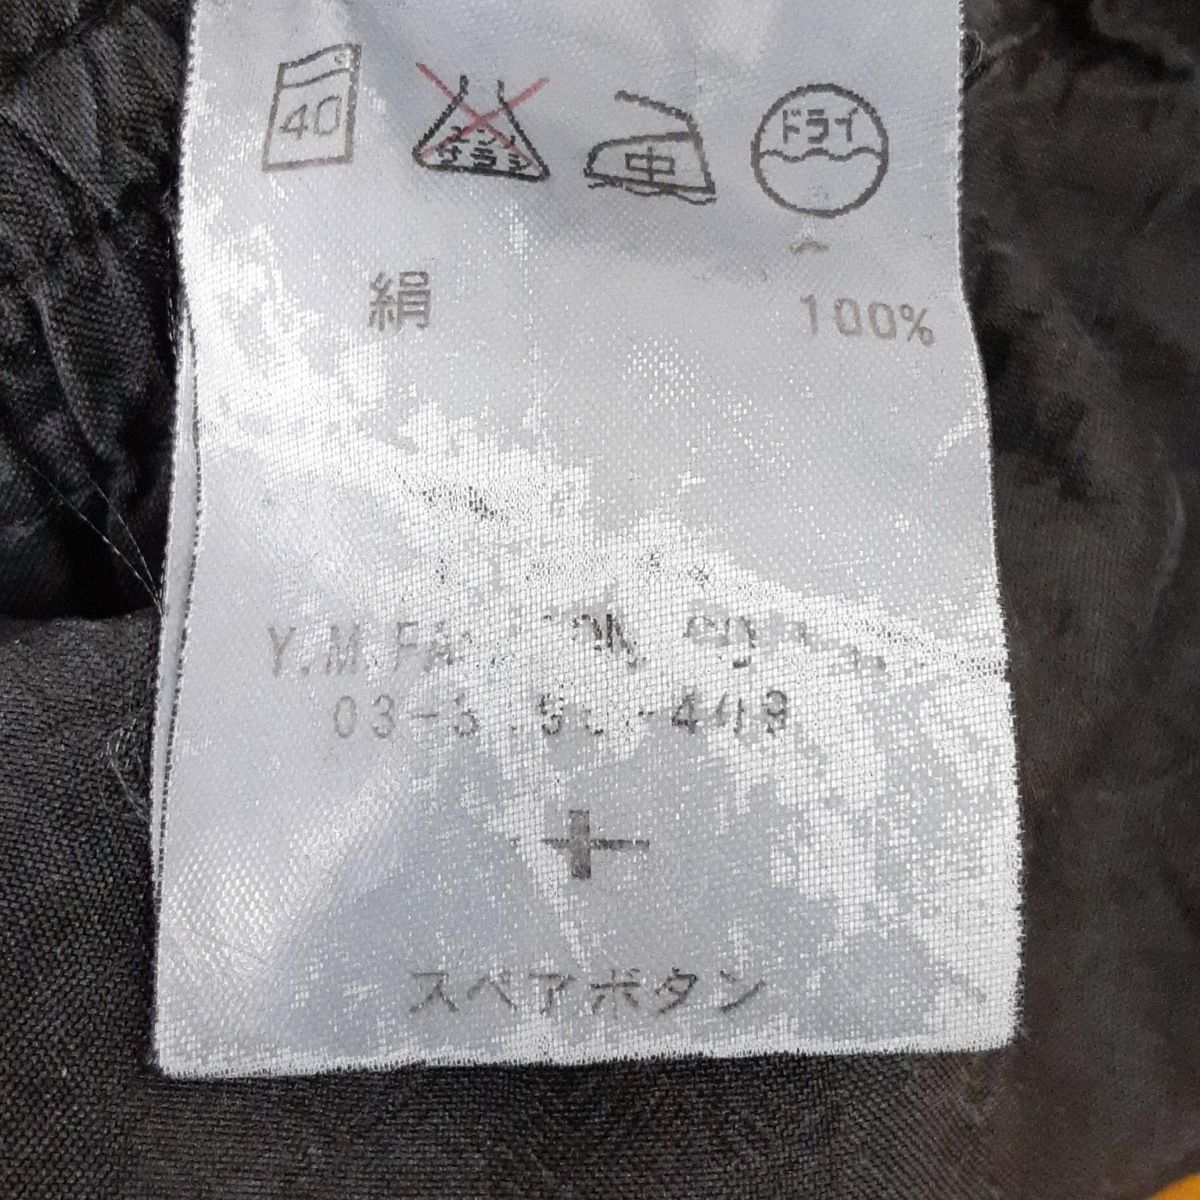 40 エンソ サラシ 中 ドライ
絹 100%
Y.M.
03-
スペアボタン